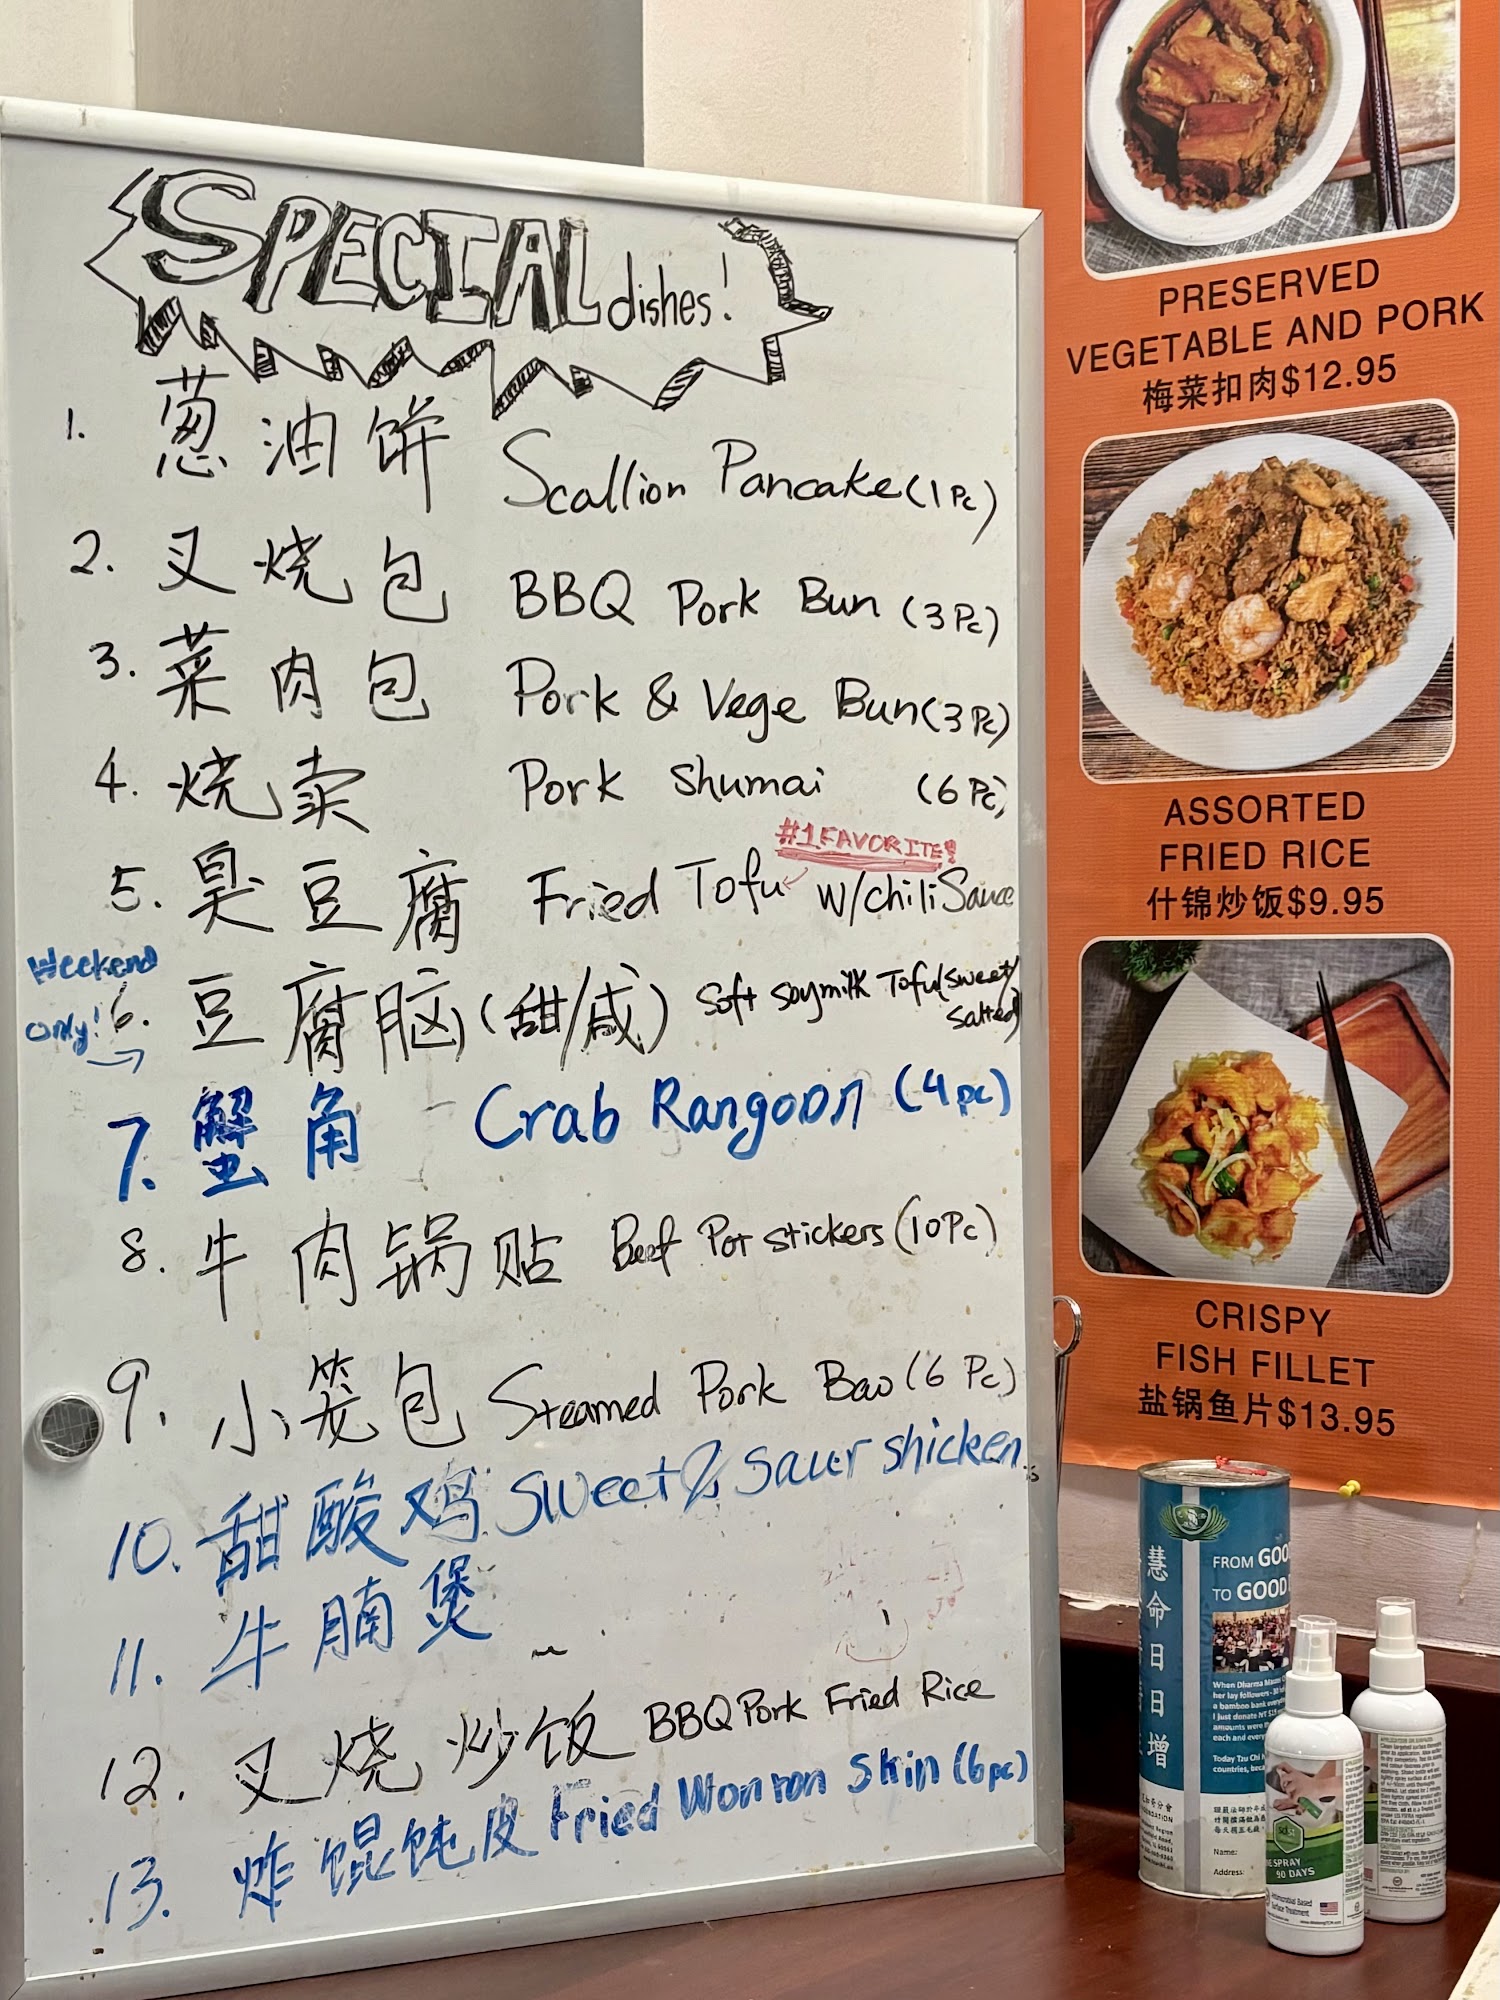 SPECIAL dishes!
1. 葱油饼 Scallion Pancake (1Pc)
2. 叉烧包 BBQ Pork Bun (3Pc)
3. 菜肉包 Pork & Vege Bun (3Pc)
4. 烧卖 Pork Shumai (6Pc)
#1 FAVORITE!
5. 臭豆腐 Fried Tofu w/chili Sauce
Weekend
only!
6. 豆腐脑 (甜/咸) Soft Soymilk Tofu (sweet/
salted)
7. 蟹角 Crab Rangoon (4pc)
8. 牛肉锅贴 Beef Pot stickers (10Pc)
9. 小笼包 Steamed Pork Bao (6 Pc)
10. 甜酸鸡 Sweet & Saur shicken
11. 牛腩煲
12. 叉烧炒饭 BBQ Pork Fried Rice
13. 炸馄饨皮 Fried Wonton Skin (6pc)
PRESERVED
VEGETABLE AND PORK
梅菜扣肉$12.95
ASSORTED
FRIED RICE
什锦炒饭$9.95
CRISPY
FISH FILLET
盐锅鱼片$13.95
慧命日日增
FROM GOO
TO GOOD
When Dharma Master
her lay followers - 30
a bamboo bank every
I just donate NT $15
amounts were
each and every
Today Tzu Chi
countries, beca
Name:
Address:
SPRAY
90 DAYS
Antimicrobial Based
Surface Treatment